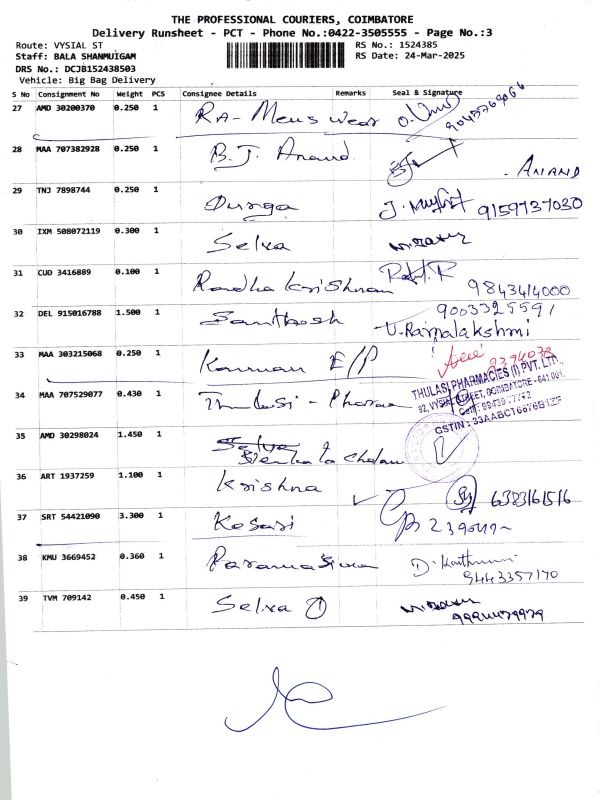 THE PROFESSIONAL COURIERS, COIMBATORE
Delivery Runsheet - PCT - Phone No.:0422-3505555 - Page No.:3
Route: VYSIAL ST
RS No.: 1524385
Staff: BALA SHANMUIGAM
RS Date: 24-Mar-2025
DRS No.: DCJB152438503
Vehicle: Big Bag Delivery
S No Consignment No Weight PCS Consignee Details Remarks Seal & Signature
27 AMD 30200370 0.250 1 RA- Mens wear
28 MAA 707382928 0.250 1 B.J. Anand
ANAND
29 TNJ 7898744 0.250 1 Durga 9159737030
30 IXM 508072119 0.300 1 Selva
31 CUD 3416889 0.100 1 Radha Krishnan 9843414000
32 DEL 915016788 1.500 1 Santhosh 9003325591
U.Rajalakshmi
33 MAA 303215068 0.250 1 Kannan E/P
34 MAA 707529077 0.430 1 Thulasi - Pharma
THULASI PHARMACIES (I) PVT. LTD.,
92, VYSIAL STREET, COIMBATORE - 641 001.
GSTIN : 33AABCT6676B1ZF
35 AMD 30298024 1.450 1 Selva
36 ART 1937259 1.100 1 Krishna 6383161516
37 SRT 54421090 3.300 1 Kesari
38 KMU 3669452 0.360 1 Paramasivam
9443357170
39 TVM 709142 0.450 1 Selva